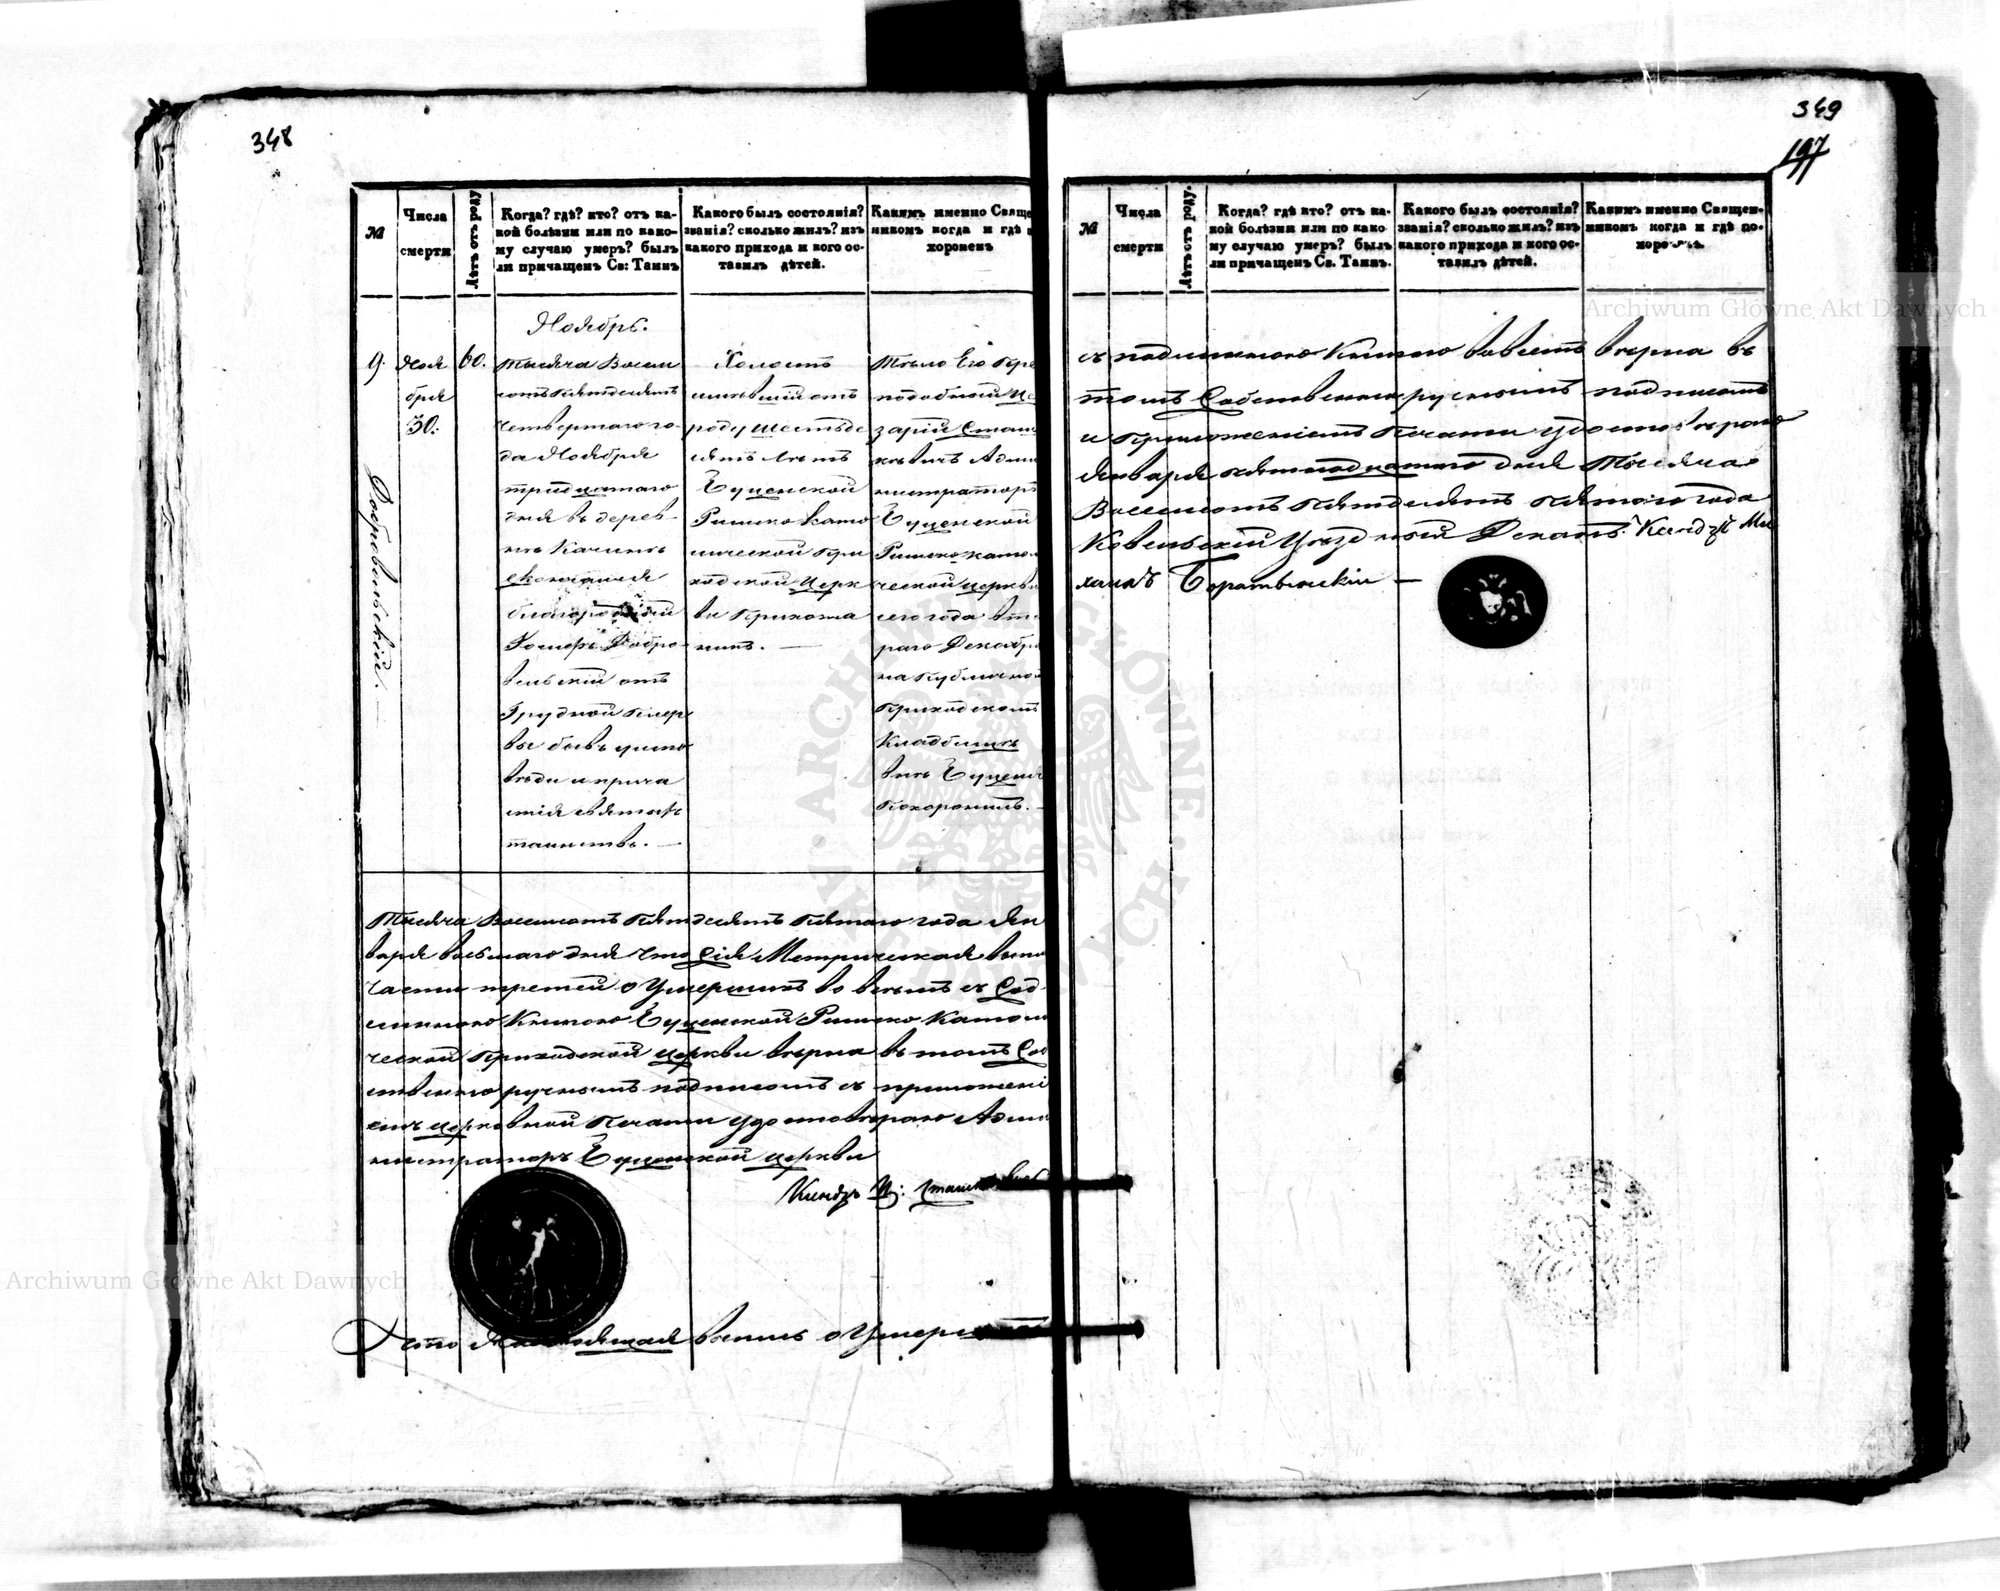 348
№
Числа
смерти
Лѣтъ отъ роду
Когда? гдѣ? кто? отъ ка-
кой болѣзни или по како-
му случаю умеръ? былъ
ли причащенъ Св: Таинъ
Какого былъ состоянія?
званія? сколько жилъ? изъ
какого прихода и кого ос-
тавилъ дѣтей.
Какимъ именно Свяще
никомъ когда и гдѣ п
хороненъ
Ноябрь.
9.
Ноя
бря
30.
Добровольскій. —
60.
Тысяча Восем
сотъ Пятдесятъ
четвертаго го-
да Ноября
тридцатаго
дня въ дерев-
нѣ Качинѣ
благородный
Іосифъ Добро-
вольскій отъ
Грудной
бывъ
и прича
стія святыхъ
таинствъ. —
Холостъ
имѣвшій отъ
роду шестьде
сятъ лѣтъ
Римско Като
лической При
ходской Церк
ви Прихожа
нинъ. —
Тѣло Его Пре
подобный Це
зарій Сташ
кѣвичъ Адми
нистраторъ
Римско като
ческой церкви
сего года вто
раго Декабря
на Публичном
Приходскомъ
Кладбищѣ
Похоронилъ. —
Тысяча Восемсотъ Пятдесятъ Пятаго года Ян
варя восьмаго дня что Сія Метрическая
части третей о Умершихъ во всемъ съ Под
линною Книгою Римско Като
ческой Приходской церкви вѣрна въ томъ Соб
ственноручнымъ подписомъ съ приложені
емъ церковной Печати удостовѣряю Адми
нистраторъ церкви
Ксендзъ Ц: Сташкевичъ
Что Настоящая выпись о Умершихъ
349
197
№
Числа
смерти
Лѣтъ отъ роду.
Когда? гдѣ кто? отъ ка-
кой болѣзни или по како-
му случаю умеръ? былъ
ли причащенъ Св. Таинъ.
Какого былъ состоянія?
званія? сколько жилъ? изъ
какого прихода и кого ос-
тавилъ дѣтей.
Какимъ именно Священ-
никомъ когда и гдѣ по-
хороненъ.
съ подлинною Книгою во всемъ вѣрна въ
томъ Собственноручнымъ подписомъ
и Приложеніемъ Печати удостовѣряю
Января пятнадцатаго дня Тысяча
Восемсотъ Пятдесятъ пятаго года
Ковельскій Уѣздный Деканъ Ксендзъ Ми
хаилъ Боратынскій —
Archiwum Główne Akt Dawnych
Archiwum Główne Akt Dawnych
ARCHIWUM GŁÓWNE AKT DAWNYCH